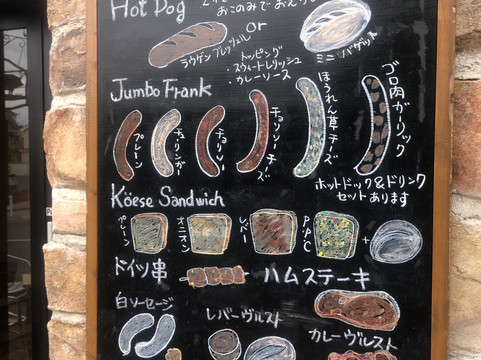 Hot Dog
おこのみで
or
ラウゲンブレッツェル
ミニバゲット
・トッピング
・スウィートレリッシュ
・カレーソース
Jumbo Frank
プレーン
チューリンガー
チョリソー
チョリソーチーズ
ほうれん草チーズ
ゴロ肉ガーリック
ホットドック&ドリンク
セットあります
Köese Sandwich
プレーン
オニオン
レバー
P.P.C
+
ドイツ串
ハムステーキ
白ソーセージ
レバーヴルスト
カレーヴルスト